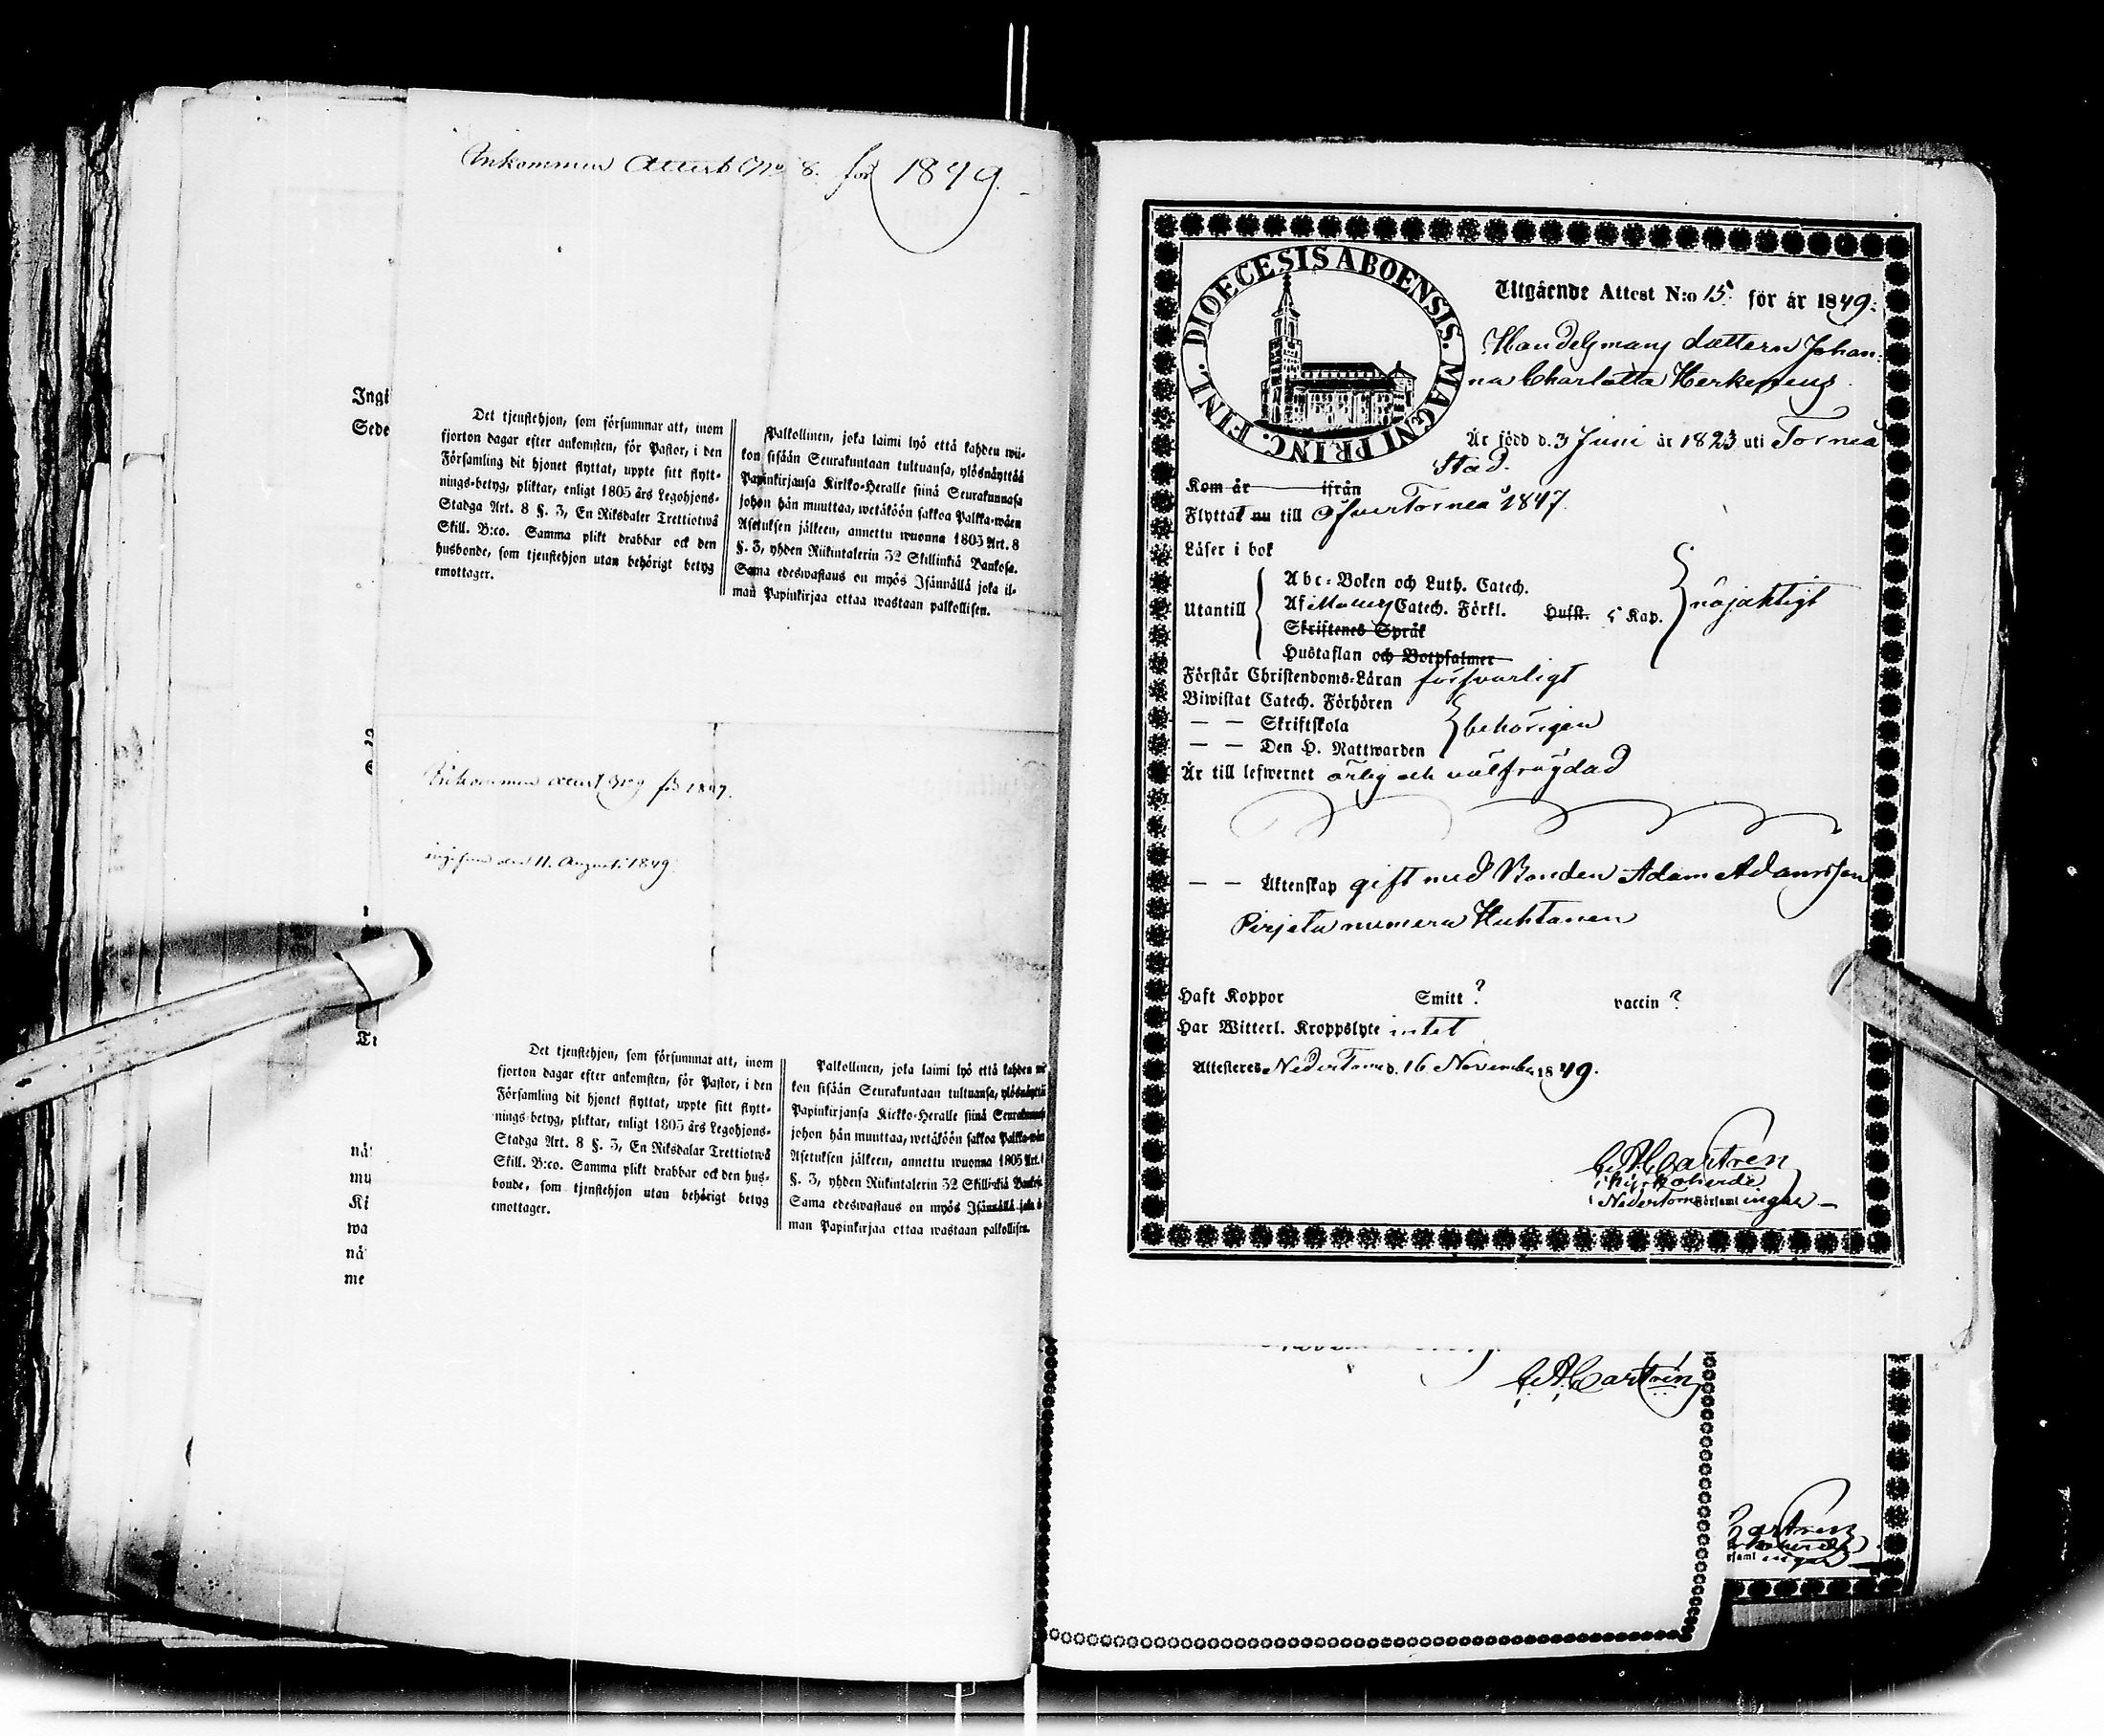 Inkommen Attest No 8. för 1849.
Det tjenstehjon, som försummar att, inom
fjorton dagar efter ankomsten, för Pastor, i den
Församling dit hjonet flyttat, uppte sitt flytt-
nings-betyg, pliktar, enligt 1805 års Legohjons-
Stadga Art. 8 §. 3, En Riksdaler Trettiotwå
Skill. B:co. Samma plikt drabbar ock den
husbonde, som tjenstehjon utan behörigt betyg
emottager.
Palkollinen, joka laimi lyö että kahden wii-
kon sisään Seurakuntaan tultuansa, ylösnäyttää
Papinkirjansa Kirkko-Heralle siinä Seurakunnasa
johon hän muuttaa, wetäköön sakkoa Palkka-wäen
Asetuksen jälkeen, annettu wuonna 1805 Art. 8
§. 3, yhden Riikintalerin 32 Skillinkiä Bankosa.
Sama edeswastaus on myös Isännällä joka il-
man Papinkirjaa ottaa wastaan palkollisen.
Ingi
Sede
Inkommen attest No 9 för 1847.
den 11. August. 1849.
Det tjenstehjon, som försummar att, inom
fjorton dagar efter ankomsten, för Pastor, i den
Församling dit hjonet flyttat, uppte sitt flytt-
nings-betyg, pliktar, enligt 1805 års Legohjons-
Stadga Art. 8 §. 3, En Riksdalar Trettiotwå
Skill. B:co. Samma plikt drabbar ock den hus-
bonde, som tjenstehjon utan behörigt betyg
emottager.
Palkollinen, joka laimi lyö että kahden wii
kon sisään Seurakuntaan tultuansa, ylösnäyttä
Papinkirjansa Kirkko-Heralle siinä Seurakunnas
johon hän muuttaa, wetäköön sakkoa Palkka-wäen
Asetuksen jälkeen, annettu wuonna 1805 Art.
§. 3, yhden Riikintalerin 32 Skillinkiä Bankos.
Sama edeswastaus on myös Isännällä joka il
man Papinkirjaa ottaa wastaan palkollisen.
nå
mu
Ki
wa
nå
me
DIOECESIS ABOENSIS. MAGNI PRINC. FINL.
Utgående Attest N:o 15 för år 1849.
Handelsmans dottern Johan-
na Charlotta
Är född d. 3 Juni år 1823 uti Torneå
Stad.
Kom år ifrån
Flyttat nu till ÖfverTorneå 1847.
Läser i bok
Utantill
Abc-Boken och Luth. Catech.
Af Catech. Förkl. Husst. 5 Kap.
Skriftenes Språk
Hustaflan och Botpsalmer
nöjaktigt
Förstår Christendoms-Läran försvarligt
Biwistat Catech. Förhören
— — Skriftskola
— — Den H. Nattwarden
behörigen
Är till lefwernet ärlig och välfrägdad
— — Äktenskap gift med Bonden Adam Adamsson
Pirjeta numera Huhtanen
Haft Koppor Smitt ? vaccin ?
Har Witterl. Kroppslyte intet
Attesteras NederTorneå d. 16 November 1849.
Castren
Kyrkoherde
i NederTorneå Församl ingar
Castrén
Castren